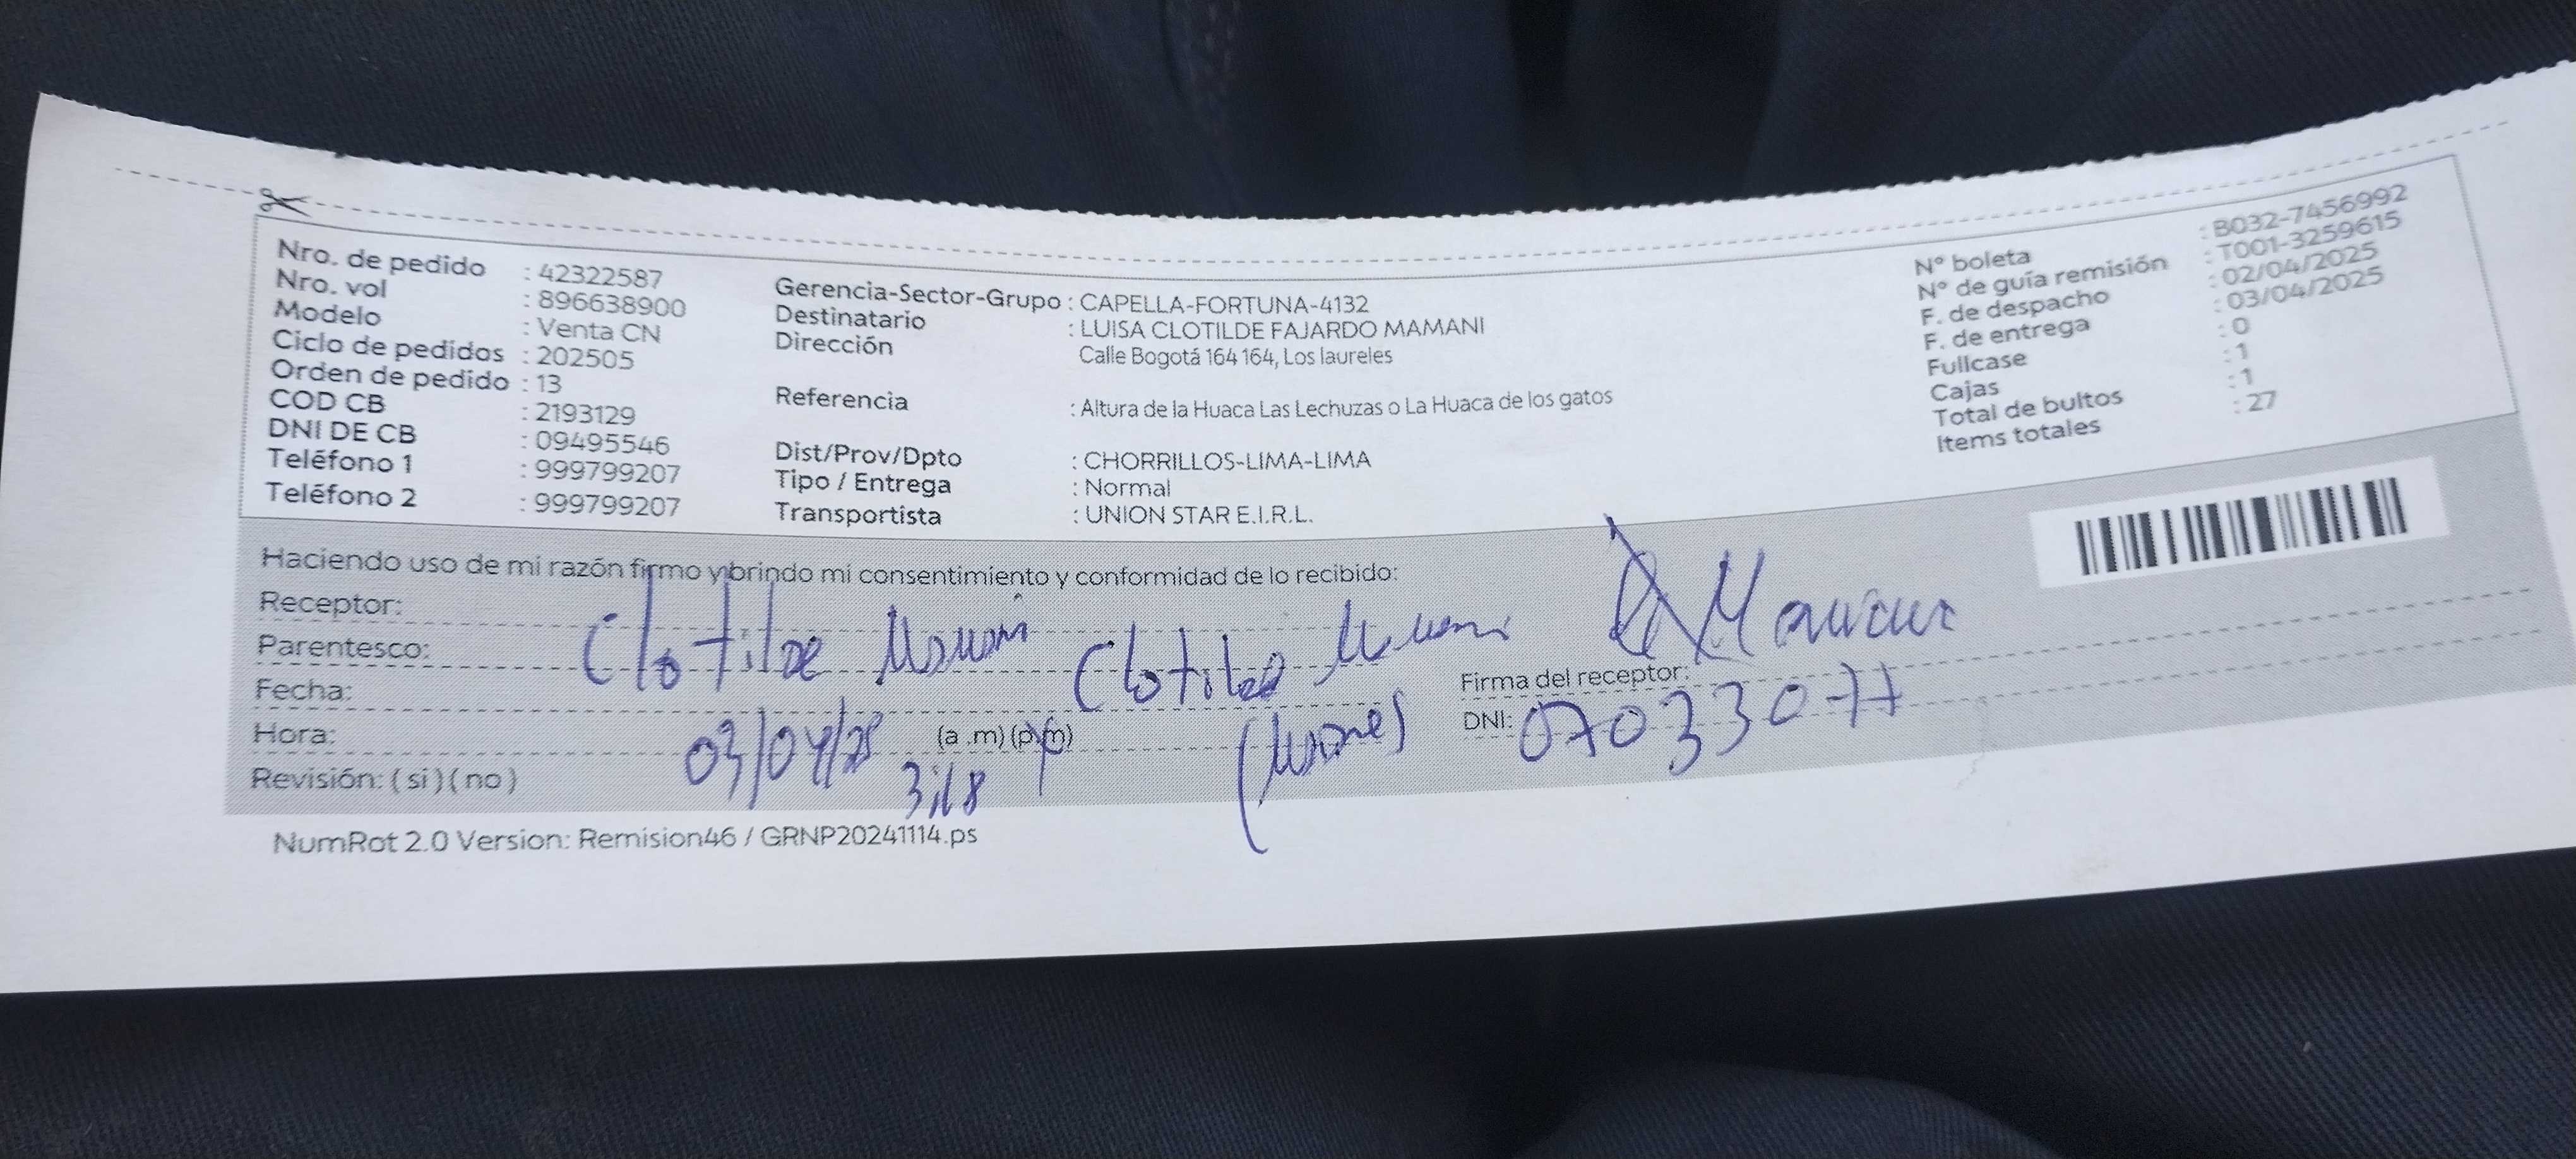 Nro. de pedido : 42322587
Nro. vol : 896638900
Modelo : Venta CN
Ciclo de pedidos : 202505
Orden de pedido : 13
COD CB : 2193129
DNI DE CB : 09495546
Teléfono 1 : 999799207
Teléfono 2 : 999799207
Gerencia-Sector-Grupo : CAPELLA-FORTUNA-4132
Destinatario : LUISA CLOTILDE FAJARDO MAMANI
Dirección Calle Bogotá 164 164, Los laureles
Referencia : Altura de la Huaca Las Lechuzas o La Huaca de los gatos
Dist/Prov/Dpto : CHORRILLOS-LIMA-LIMA
Tipo / Entrega : Normal
Transportista : UNION STAR E.I.R.L.
N° boleta : B032-7456992
N° de guía remisión : T001-3259615
F. de despacho : 02/04/2025
F. de entrega : 03/04/2025
Fullcase : 0
Cajas : 1
Total de bultos : 1
Items totales : 27
Haciendo uso de mi razón firmo y brindo mi consentimiento y conformidad de lo recibido:
Receptor: Clotilde Mamani
Parentesco: Clotilde
Fecha: 03/04/25
Hora: 3:18 (a .m) (p.m)
Revisión: ( si ) ( no )
Firma del receptor:
DNI: 07033077
NumRot 2.0 Version: Remision46 / GRNP20241114.ps